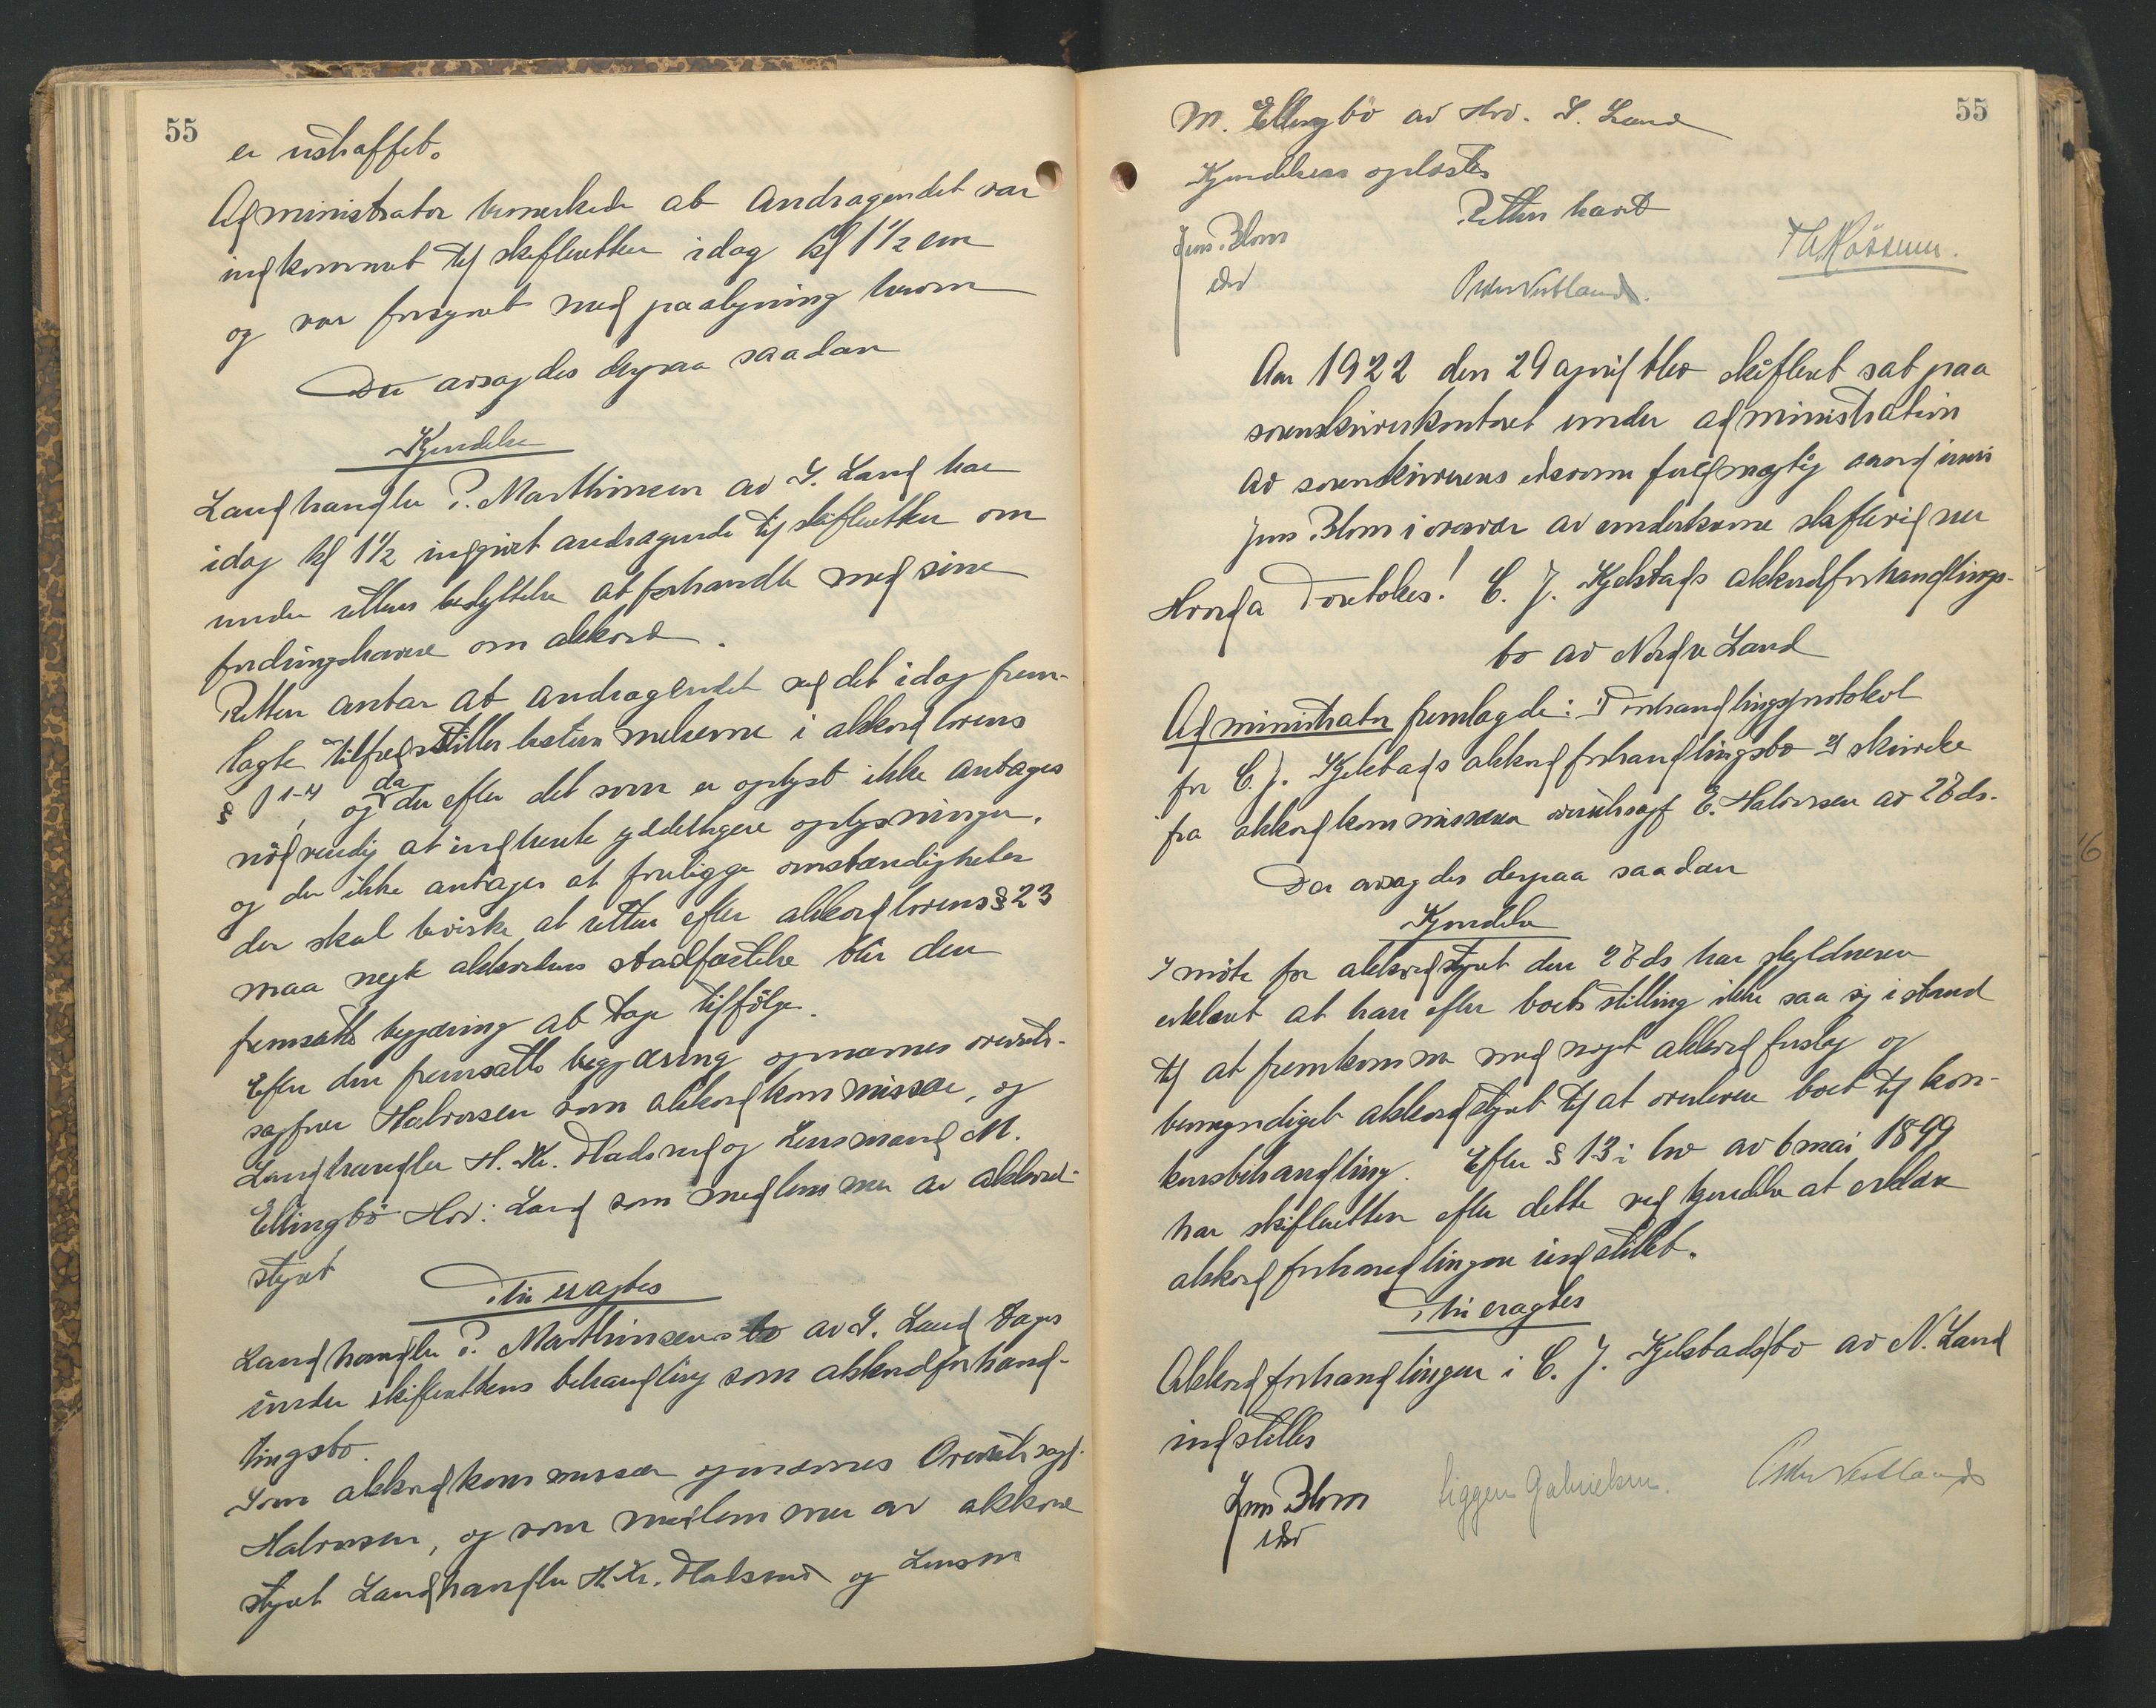 55
er ustraffet.
Administrator bemerkede at andragendet var
indkommet til skifteretten idag kl 1½ em
og var forsynet med paategning herom
Der avsagdes derpaa saadan
Kjendelse
Landhandler P. Marthinsen av S. Land har
idag kl 1½ indgivet andragende til skifteretten om
under rettens beskyttelse at forhandle med sine
fordringshavere om akkord.
Retten antar at andragendet ved det idag frem-
lagte tilfredsstiller bestemmelserne i akkordlovens
§ 1-4, og da der efter det som er oplyst ikke antages
nödvendig at indhente yderligere oplysninger,
og der ikke antages at foreligge omstændigheter
der skal bevirke at retten efter akkordlovens § 23
maa negte akkordens stadfæstelse blir den
fremsatte begjæring at tage tilfölge.
Efter den fremsatte begjæring opnævnes overrets-
sagförer Halvorsen som akkordkommissær, og
Landhandler H. Kr. Hadsund og Lensmand M.
Ellingbö Hov: Land som medlemmer av akkord-
styret
Thi eragtes
Landhandler P. Marthinsens bo av S. Land tages
under skifterettens behandling som akkordforhand-
lingsbo.
Som akkordkommissær opnævnes Overretssagf.
Halvorsen, og som medlemmer av akkord
styret Landhandler H. Kr. Hadsund og Lensm
55
M. Ellingbö av Hov. S. Land
Kjendelsen oplæstes
Retten hævet
Jens Blom
edsv
Peder Vestland.
Th. Rössum.
Aar 1922 den 29 april blev skifteret sat paa
sorenskriverkontoret under administration
av sorenskriverens edsvorne fuldmægtig cand juris
Jens Blom i overvær av undertegnede skiftevidner
Hvorda Foretokes! C. J. Kjelstads akkordforhandlings-
bo av Nordre Land
Administrator fremlagde: Forhandlingsprotokol
for C. J. Kjelstads akkordforhandlingsbo og skrivelse
fra akkordkommissæren overretssagf E. Halvorsen av 28 ds.
Der avsagdes derpaa saadan
Kjendelse
I möte for akkordstyret den 28 ds har skyldneren
erklæret at han efter boets stilling ikke saa sig i stand
til at fremkomme med noget akkordforslag og
bemyndiget akkordstyret til at overlevere boet til kon-
kursbehandling. Efter § 13 i lov av 6 mai 1899
har skifteretten efter dette ved kjendelse at erklære
akkordforhandlingen indstillet.
Thi eragtes
Akkordforhandlingen i C. J. Kjelstads bo av N. Land
indstilles
Jens Blom
edsv
Siggen Gabrielsen.
Peder Vestland
16